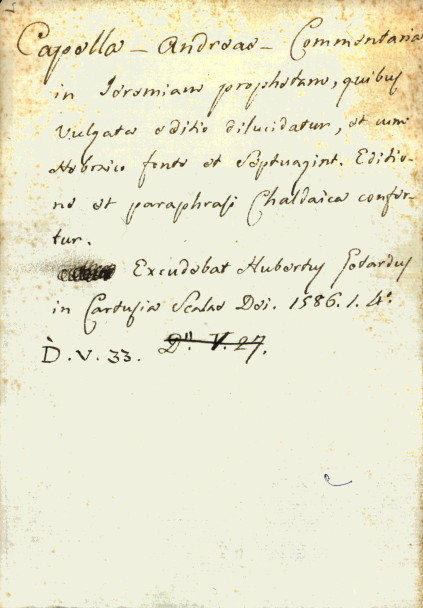 Capella - Andreae - Commentaria
in Ieremiam prophetam, quibus
Vulgata editio dilucidatur, et cum
Hebraico fonte et Septuagint. Editio-
ne et paraphrasi Chaldaica confer-
tur.
Excudebat Hubertus Gotardus
in Cartusia Scalae Dei. 1586. 1. 4º.
D. V. 33. Dn V. 27.